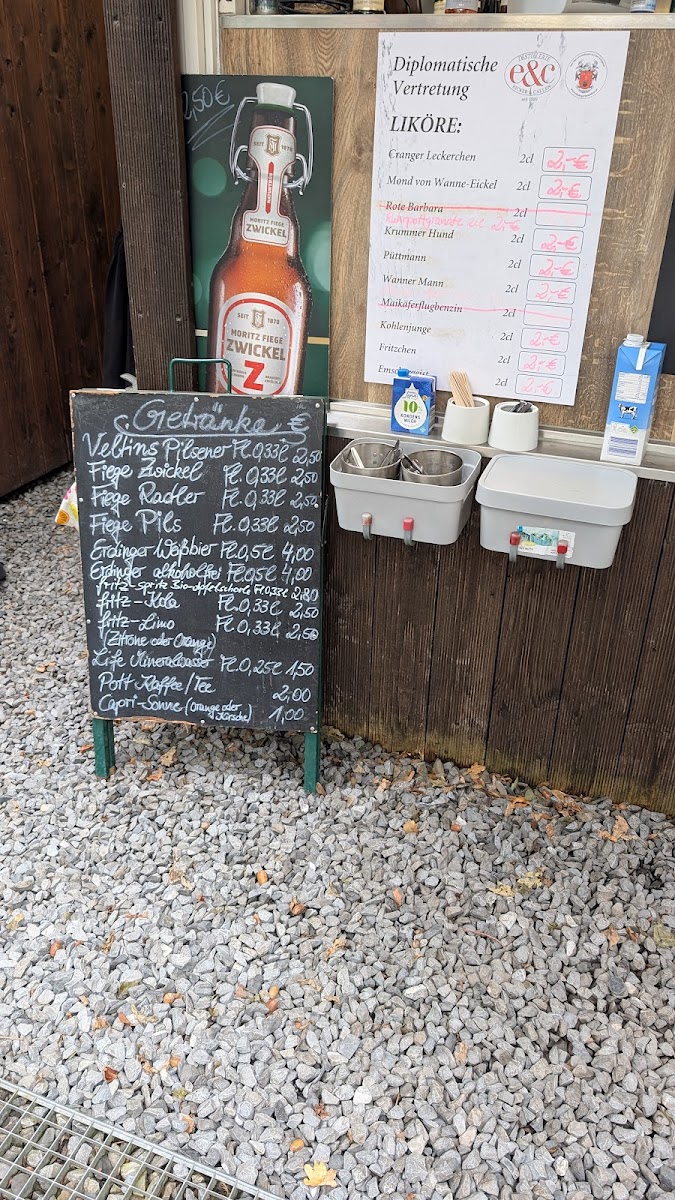 2,50€
SEIT 1878
MORITZ FIEGE
ZWICKEL
SEIT 1878
MORITZ FIEGE
ZWICKEL
Z
Diplomatische
Vertretung
e&c
LIKÖRE:
Cranger Leckerchen 2cl 2,-€
Mond von Wanne-Eickel 2cl 2,-€
Rote Barbara 2cl
Ruhrpottgranate 2cl 2,-€
Krummer Hund 2cl 2,-€
Püttmann 2cl 2,-€
Wanner Mann 2cl 2,-€
Maikäferflugbenzin 2cl
Kohlenjunge 2cl 2,-€
Fritzchen 2cl 2,-€
2cl 2,-€
10
KONDENS
MILCH
Getränke €
Veltins Pilsener Fl. 0,33l 2,50
Fiege Zwickel Fl. 0,33l 2,50
Fiege Radler Fl. 0,33l 2,50
Fiege Pils Fl. 0,33l 2,50
Erdinger Weißbier Fl. 0,5l 4,00
Erdinger alkoholfrei Fl. 0,5l 4,00
fritz-spritz Bio-Apfelschorle Fl. 0,33l 2,80
fritz-Kola Fl. 0,33l 2,50
fritz-Limo Fl. 0,33l 2,50
(Zitrone oder Orange)
Life Mineralwasser Fl. 0,25l 1,50
Pott Kaffee/Tee 2,00
Capri-Sonne (Orange oder Kirsche) 1,00